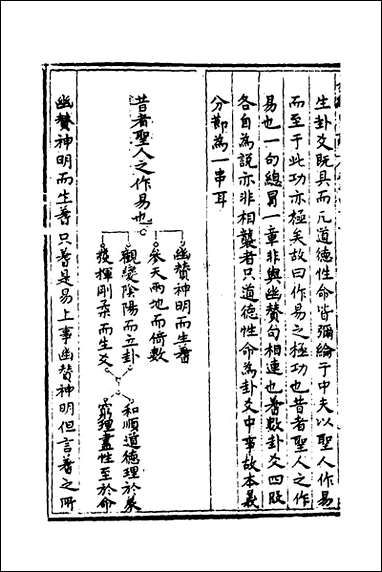 生卦爻既具而凢道德性命皆彌綸于中夫以聖人作易
而至于此功亦極矣故曰作易之極功也昔者聖人之作
易也一句總冐一章非與幽赞句相連也蓍數卦爻四股
各自為說亦非相襲者只道德性命為卦爻中事故本義
分節為一串耳
昔者聖人之作易也
幽赞神明而生蓍
參天兩地而倚數
觀變陰陽而立卦
發揮剛柔而生爻
和順道德理於義
窮理盡性至於命
幽赞神明而生蓍只蓍是易上事幽赞神明但言蓍之所